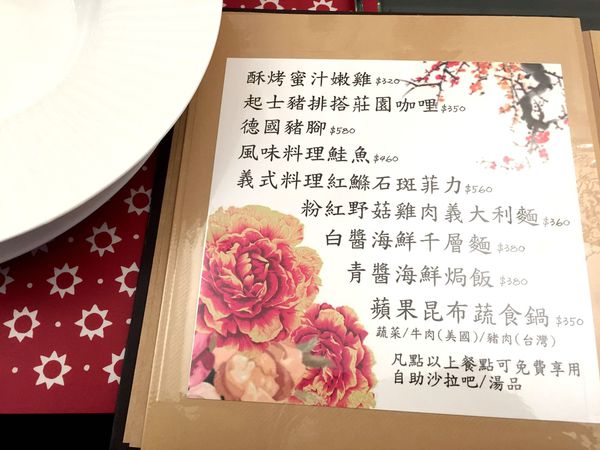 酥烤蜜汁嫩雞$320
起士豬排搭莊園咖哩$350
德國豬腳$580
風味料理鮭魚$460
義式料理紅鰷石斑菲力$560
粉紅野菇雞肉義大利麵$360
白醬海鮮千層麵$380
青醬海鮮焗飯$380
蘋果昆布蔬食鍋$350
蔬菜/牛肉(美國)/豬肉(台灣)
凡點以上餐點可免費享用
自助沙拉吧/湯品